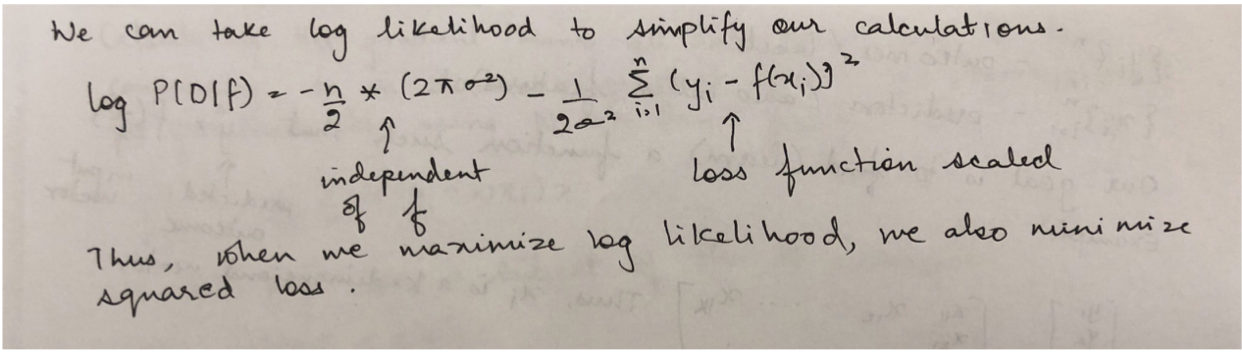 We can take log likelihood to simplify our calculations.
log P(D|f) = -n/2 * (2πσ²) - 1/2σ² Σ_{i=1}^{n} (yᵢ - f(xᵢ))²
↑ ↑
independent loss function scaled
of f
Thus, when we maximize log likelihood, we also minimize
squared loss.